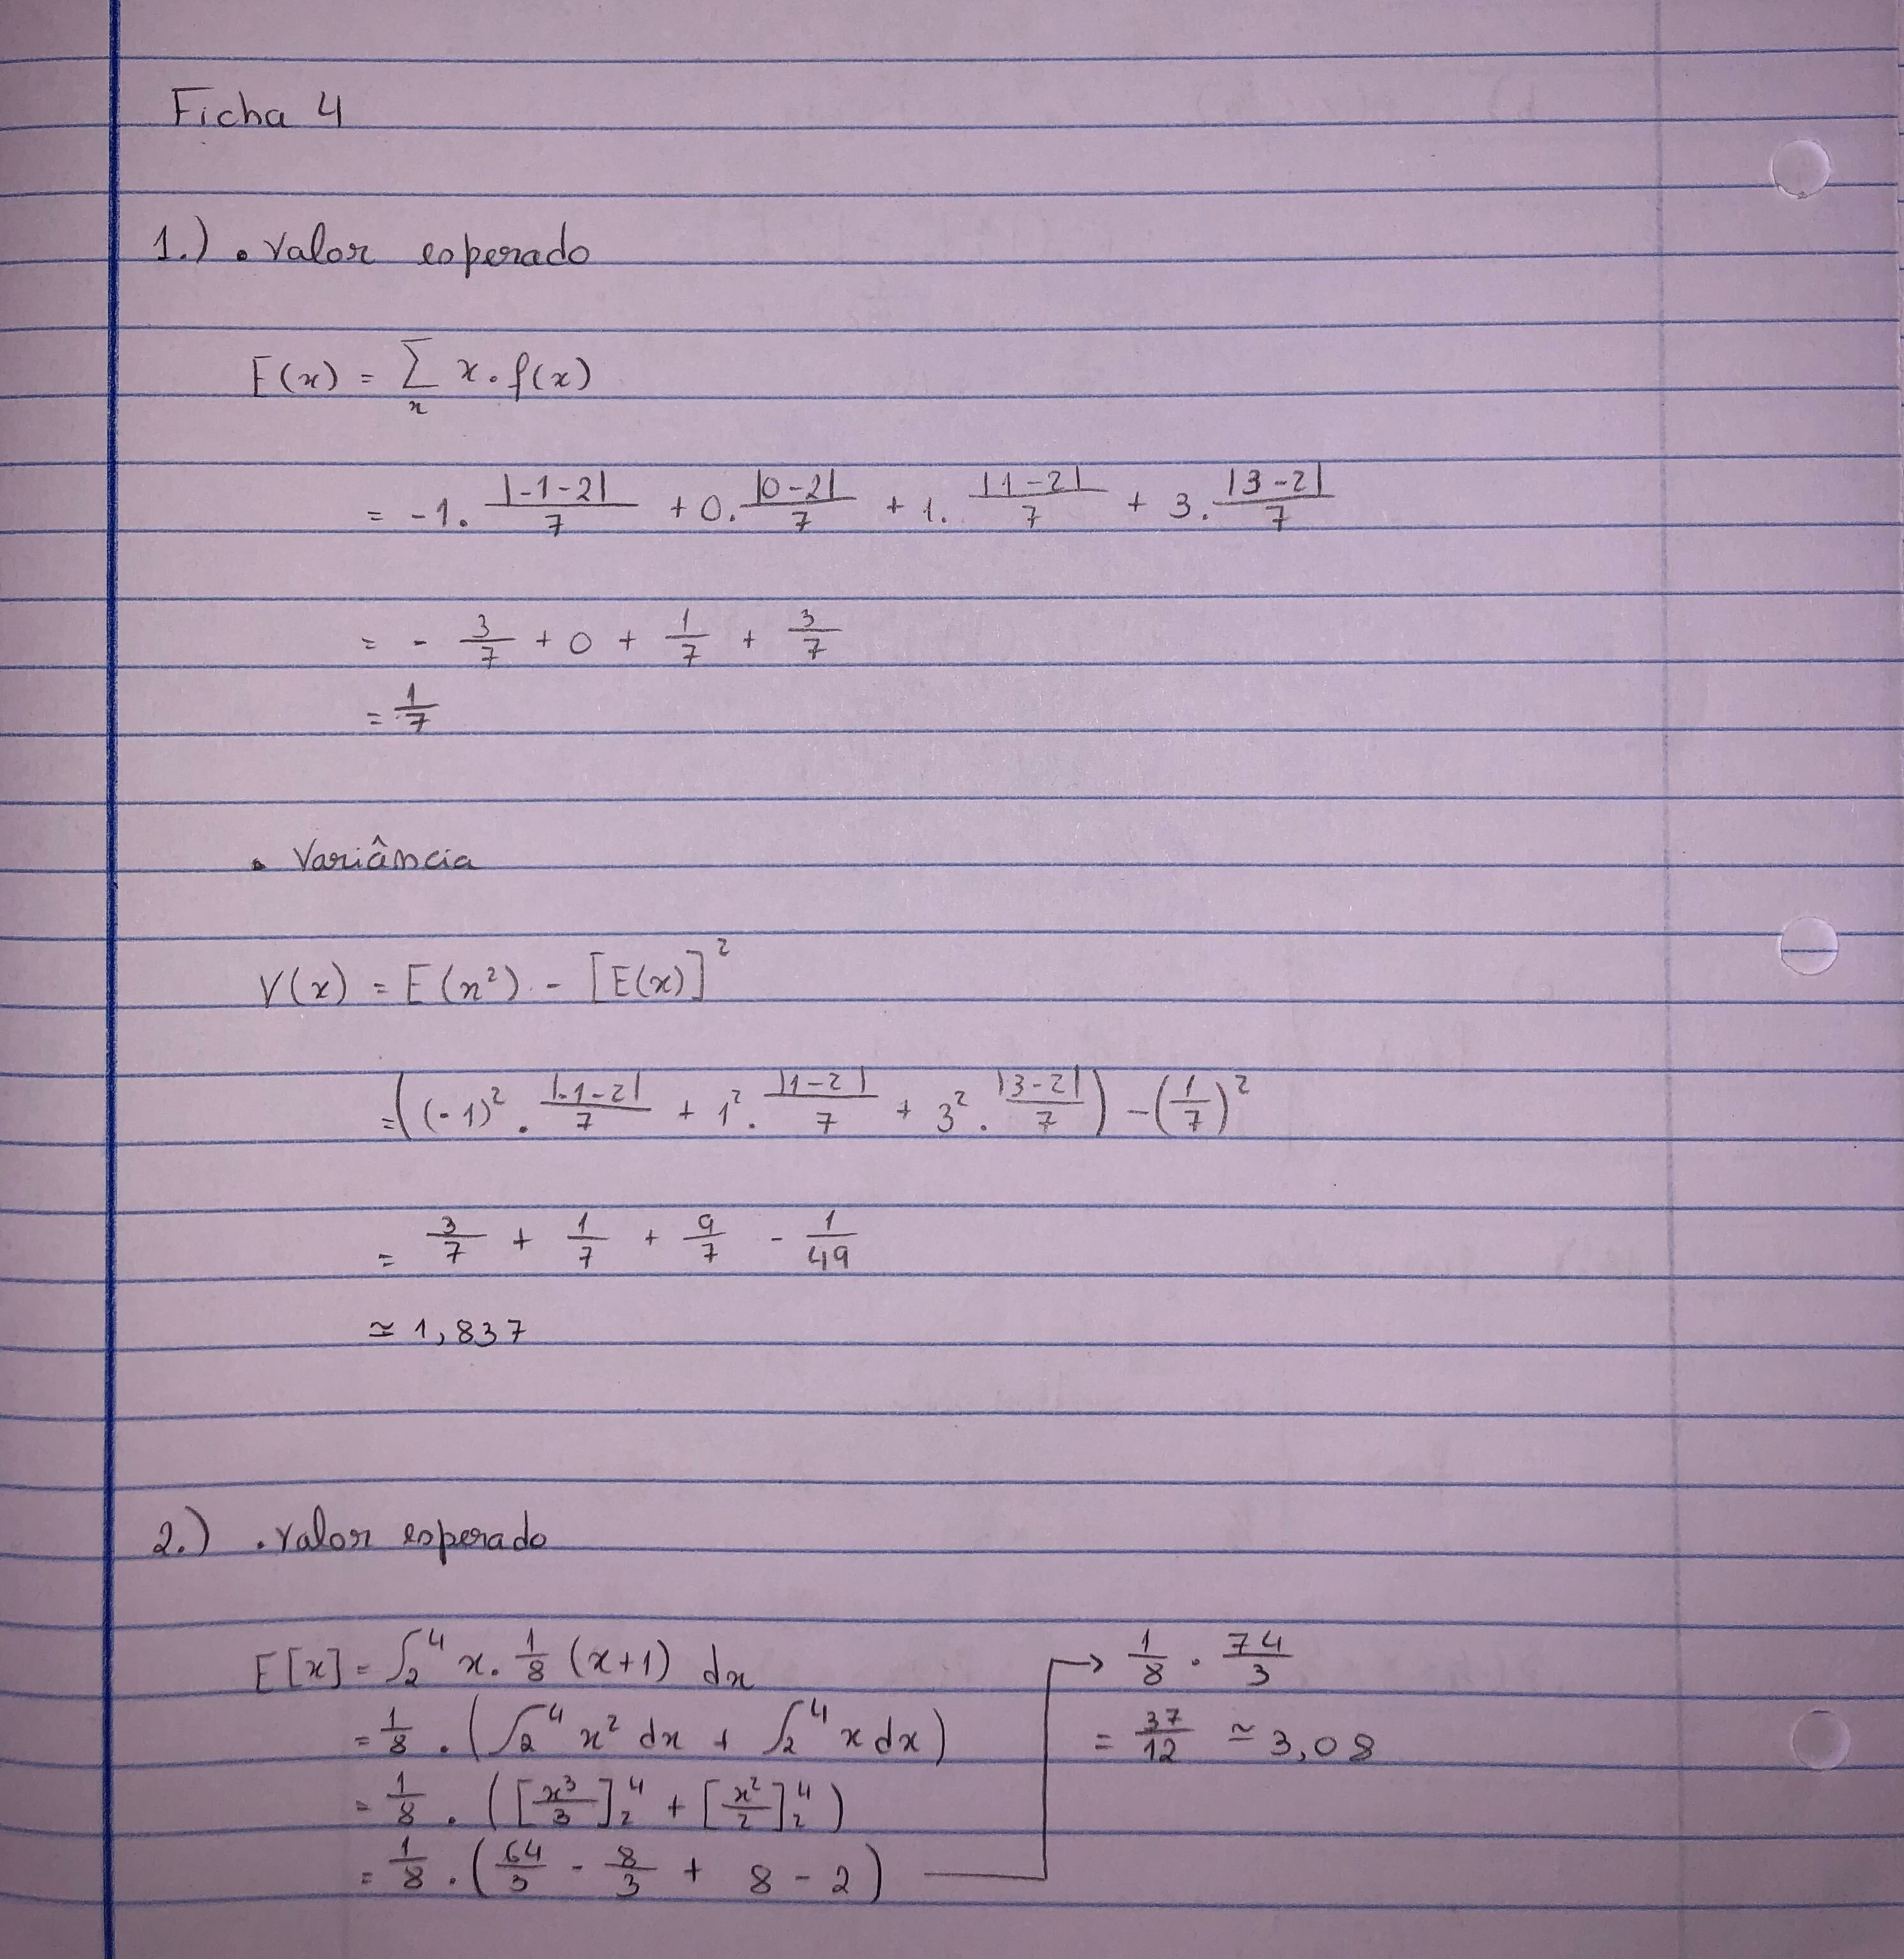 Ficha 4
1.) • Valor esperado
E(x) = ∑ₓ x . f(x)
= -1 . |-1-2|/7 + 0 . |0-2|/7 + 1 . |1-2|/7 + 3 . |3-2|/7
= - 3/7 + 0 + 1/7 + 3/7
= 1/7
• Variância
V(x) = E(x²) - [E(x)]²
= ((-1)² . |-1-2|/7 + 1² . |1-2|/7 + 3² . |3-2|/7) - (1/7)²
= 3/7 + 1/7 + 9/7 - 1/49
≃ 1,837
2.) . Valor esperado
E[x] = ∫₂⁴ x . 1/8 (x+1) dx
= 1/8 . (∫₂⁴ x² dx + ∫₂⁴ x dx)
= 1/8 . ([x³/3]₂⁴ + [x²/2]₂⁴)
= 1/8 . (64/3 - 8/3 + 8 - 2)
→ 1/8 . 74/3
= 37/12 ≃ 3,08